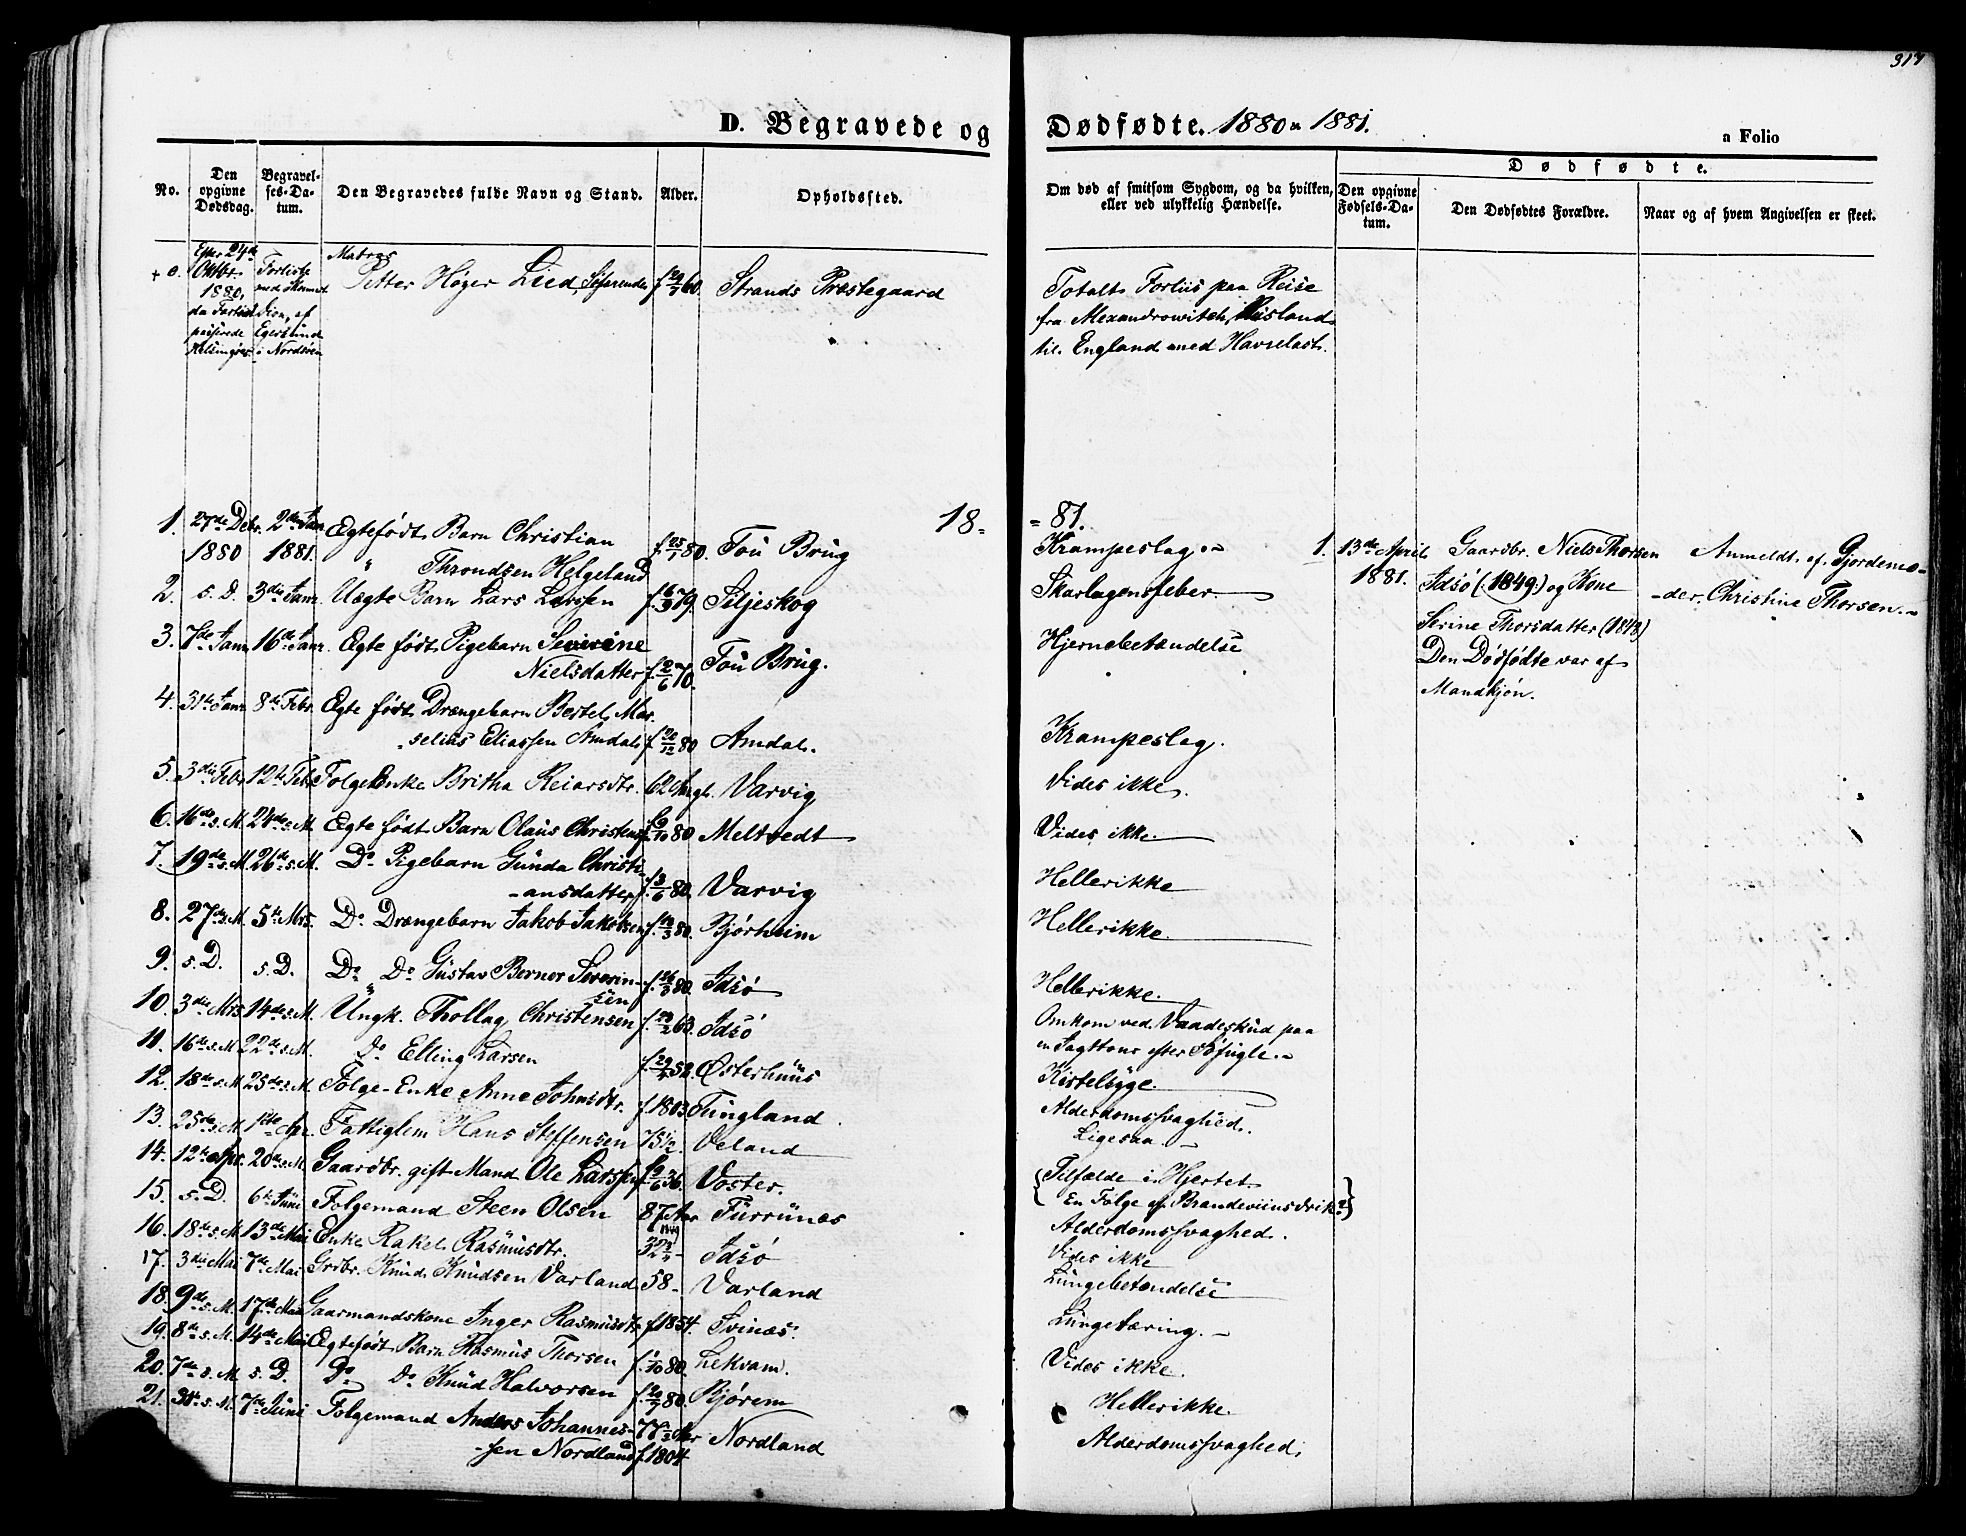 314
D. Begravede og Dødfødte. 1880 & 1881.
a Folio
No.
Den opgivne Dødsdag.
Begravelses-Datum.
Den Begravedes fulde Navn og Stand.
Alder.
Opholdssted.
Om død af smitsom Sygdom, og da hvilken,
eller ved ulykkelig Hændelse.
Dødfødte.
Den opgivne Fødsels-Datum.
Den Dødfødtes Forældre.
Naar og af hvem Angivelsen er skeet.
+ 0. Efter 24de Oktbr. 1880, da Fartøiet passerede Helsingør
Forliste med Skonnert Dion, af Egersund i Nordsøen
Matros
Petter Høger Lied, Søfarende f. 20/7 60. Strands Præstegaard
Totalt Forliis paa Reise
fra Alexandrowitch, Rusland
til England med Havrelast.
18 = 81.
1. 27de Debr. 1880 2den Janr 1881. Egtefødt Barn Christian
Throndsen Helgeland f. 25/7 80. Tou Brug Krampeslag
2. s. D. 3die Janr Uegte Barn Lars Larssen f. 6/9 79. Siljeskog Skarlagensfeber
3. 7de Janr 16de Janr. Egte født Pigebarn Severine
Nielsdatter f. 2/6 70. Tou Brug. Hjernebetændelse
4. 31te Janr 8de Febr. Egte født Drængebarn Bertel Mar-
selius Eliassen Amdal f. 20/12 80 Amdal. Krampeslag.
5. 3die Febr 12te Febr Folge Enke Britha Reiarsdtr. 62 Aar gl. Varvig Vides ikke.
6. 16de s. M. 24de s. M. Egte født Barn Olaus Christens. f. 9/10 80 Meltvedt Vides ikke.
7. 19de s. M. 26de s. M. Do. Pigebarn Gunda Christi-
ansdatter f. 3/6 80. Varvig Hellerikke
8. 27de s. M. 5te Mrs. Do. Drængebarn Jakob Jakobsen f. 14/3 80. Bjørheim Hellerikke.
9. s. D. s. D. Do. Do. Gustav Berner Severin-
sen f. 26/3 80. Idsø Hellerikke.
10. 3die Mrs 14de s. M. Ungk. Thollag Christensen f. 23/2 63. Idsø Omkom ved Vaadeskud paa
en Jagttour efter Søfugle.
11. 16de s. M 22de s. M. Do Elling Larsen f. 29/4 52. Østerhuus Kirtelsyge.
12. 18de s. M. 25de s. M. Folge-Enke Anne Johnsdtr. f. 1803. Tungland. Alderdomssvaghed.
13. 25de s. M. 1ste Apr. Fattiglem Hans Steffensen 75 1/2. Veland Ligesaa.
14. 12te Apr. 20de s. M. Gaardbr. gift Mand Ole Larssen f. 9/6 36. Voster. { Tilfælde i Hjertet.
En Følge af Brændeviinsdrik? }
15. s. D. 6te Juni Folgemand Steen Olsen 87 Aar Furrunes Alderdomssvaghed.
16. 18de s. M. 13de Mai Enke Rakel Rasmusdtr. Idsø Vides ikke
17. 3die Mai 7de Mai Grdbr. Knud Knudsen Varland 58 - Varland Lungebetændelse
18. 9de s. M. 17de Mai Gaarmandskone Inger Rasmusdtr f. 1854. Svinæs. Lungetæring.
19. 8de s. M. 14de Mai Egtefødt Barn Rasmus Thorsen f. 1/10 80. Lekvam. Vides ikke.
20. 7de s. M. s. D. Do Do Knud Halvorsen f. 20/7 80. Bjørem Hellerikke.
21. 31te s. M. 7de Juni Folgemand Anders Johannes-
sen Nordland 77 Aar f. 1804 Nordland Alderdomssvaghed.
1. 13de April 1881. Gaardbr. Niels Thorsen
Idsø (1849) og Kone
Serine Thorsdatter (1848)
Den Dødfødte var af
Mandkjøn.
Anmeldt af Gjordemo-
der, Christine Thorsen.